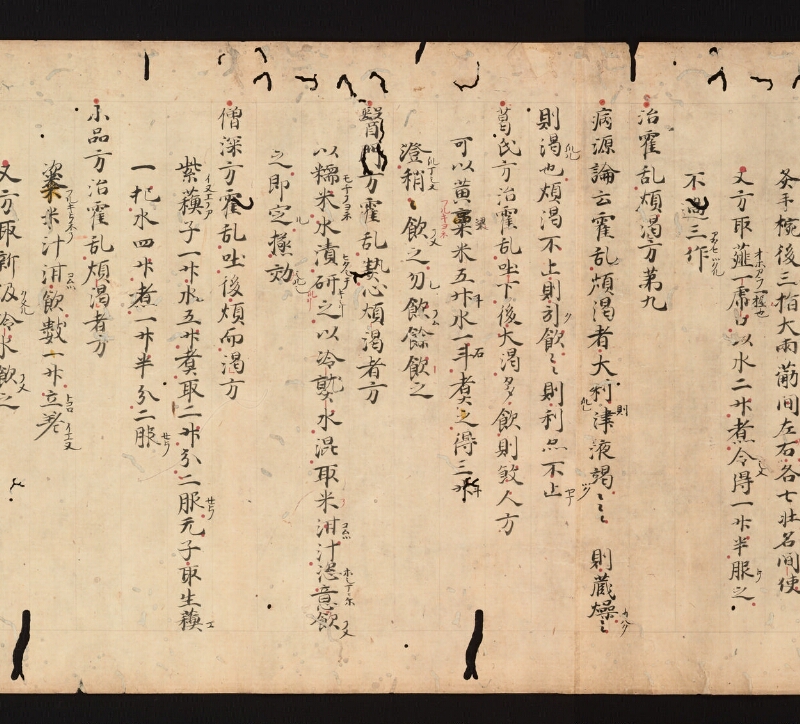 灸手捥後三指大兩筋間左右各七壮名間使
又方取薤一虎口以水二升煮令得一升半服之
不過三作
治霍乱煩渴方第九
病源論云霍乱煩渴者大利津液竭〻〻則蔵燥〻
則渴也煩渴不止則引飲〻〻則利亦不止
葛氏方治霍乱吐下後大渴多飲則煞人方
可以黄粱米五升水一斗煮之得三升
澄稍〻飲之勿飲餘飲之
醫門方霍乱熱心煩渴者方
以糯米水漬研之以冷熟水混取米泔汁恣意飲
之即定極効
僧深方霍乱吐後煩而渴方
紫蘇子一升水五升煮取二升分二服无子取生蘇
一把水四升煮一升半分二服
小品方治霍乱煩渴者方
粱米汁泔飲數升立差
又方取新汲冷水飲之